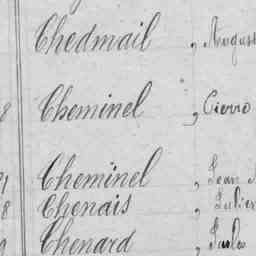 Chedmail , August
8 Cheminel , Pierre
Cheminel , Jean
8 Chenais , Julien
Chenard , Jules